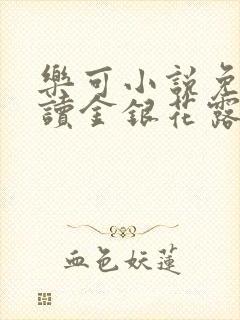 樂可小説免
讀金銀花露
血色妖蓮